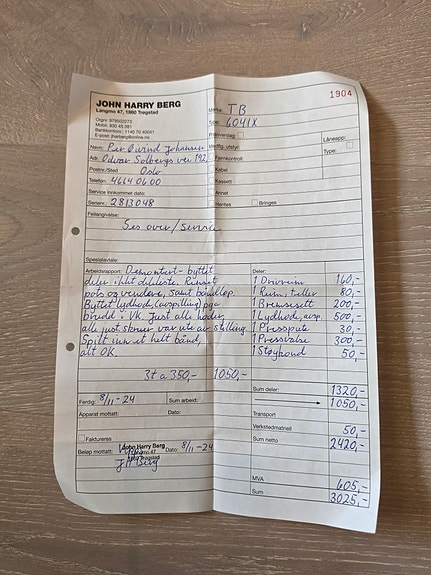 1904
JOHN HARRY BERG
Långmo 47, 1860 Trøgstad
Orgnr. 979502273
Mobil: 930 45 381
Bankkonto nr.: 1140 70 40041
E-post: jharberg@online.no
Merke: TB
Type: 6041X
Prisoverslag:
Medfg. utstyr:
Låneapp:
Type:
Navn: Per Øivind Johansen
Adr. Odvar Solbergs vei 192
Fjernkontroll:
Postnr./Sted Oslo
Kabel
Telefon: 46640600
Kassett
Service innkommet dato:
Annet
Serienr.: 2813048
Hentes Bringes
Feilangivelse:
Ses over/service
Spesialavtale:
Arbeidsrapport: Demontert - byttet
deler iht deleliste. Renset
pots og vendere, samt båndløp.
Byttet lydhode (avspilling) pga
brudd i VK. Just alle hoder,
alle just skruer var ute av stilling.
Spilt inn et helt bånd,
alt OK.
3t a 350,- 1050,-
Deler:
1 Drivrem 160,-
1 Reim, teller 80,-
1 Bremsesett 200,-
1 Lydhode, avsp. 500,-
1 Pressputе 30,-
1 Pressvalse 300,-
1 Støykond 50,-
Sum deler: 1320,-
Ferdig: 8/11-24
Sum arbeid: 1050,-
Apparat mottatt: Dato:
Transport
Verkstedmateriell 50,-
Faktureres
Sum netto 2420,-
Beløp mottatt:
John Harry Berg
Långmo 47
1860 Trøgstad
JH Berg
Dato: 8/11-24
MVA 605,-
Sum 3025,-